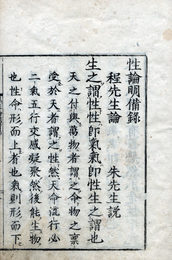 性論明備錄
程先生論
朱先生說
生之謂性性即氣氣即性生之謂也
天之付與萬物者謂之命物之稟
受於天者謂之性然天命流行必
二氣五行交感凝聚然後能生物
也性命形而上者也氣則形而下